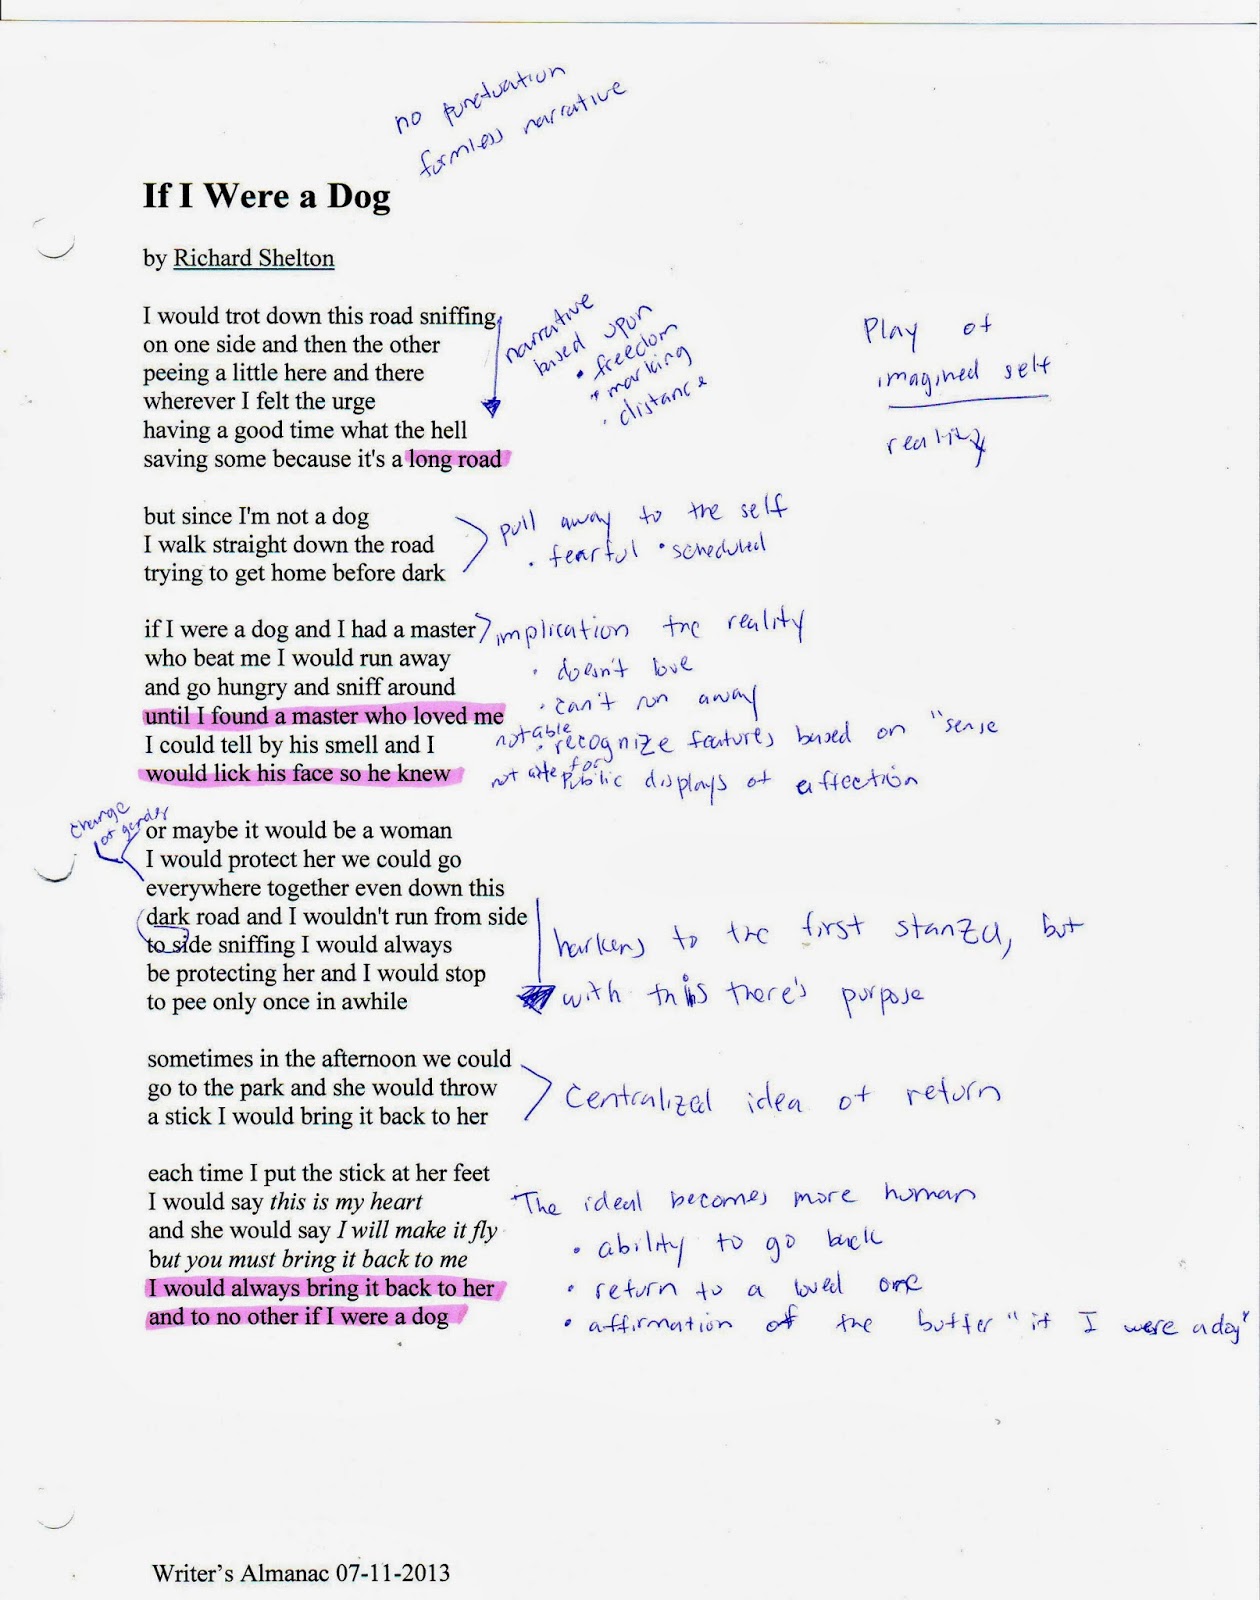 no punctuation
formless narrative
If I Were a Dog
by Richard Shelton
I would trot down this road sniffing
on one side and then the other
peeing a little here and there
wherever I felt the urge
having a good time what the hell
saving some because it's a long road
narrative
based upon
• freedom
• marking
• distance
Play of
imagined self
reality
but since I'm not a dog
I walk straight down the road
trying to get home before dark
pull away to the self
• fearful • scheduled
if I were a dog and I had a master
who beat me I would run away
and go hungry and sniff around
until I found a master who loved me
I could tell by his smell and I
would lick his face so he knew
implication the reality
• doesn't love
• can't run away
not able
• recognize features based on "sense
not for
public displays of affection
change
of gender
or maybe it would be a woman
I would protect her we could go
everywhere together even down this
dark road and I wouldn't run from side
to side sniffing I would always
be protecting her and I would stop
to pee only once in awhile
harkens to the first stanza, but
with this there's purpose
sometimes in the afternoon we could
go to the park and she would throw
a stick I would bring it back to her
Centralized idea of return
each time I put the stick at her feet
I would say this is my heart
and she would say I will make it fly
but you must bring it back to me
I would always bring it back to her
and to no other if I were a dog
The ideal becomes more human
• ability to go back
• return to a loved one
• affirmation of the buffer "if I were a dog"
Writer's Almanac 07-11-2013